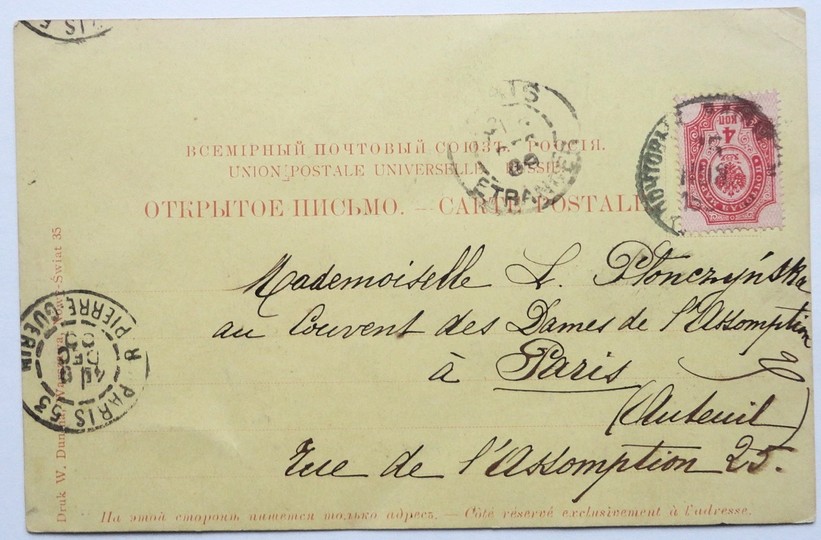 ВСЕМІРНЫЙ ПОЧТОВЫЙ СОЮЗЪ. РОССІЯ.
UNION POSTALE UNIVERSELLE. RUSSIE.
ОТКРЫТОЕ ПИСЬМО. — CARTE POSTALE
ÉTRANGER
4 КОП
Mademoiselle L. Płonczyńska
au Couvent des Dames de l'Assomption
à Paris
(Auteuil)
Rue de l'Assomption 25.
PARIS 53
R PIERRE GUERIN
DEC
Druk W.
Świat 35
На этой сторонѣ пишется только адресъ. — Côté réservé exclusivement à l'adresse.